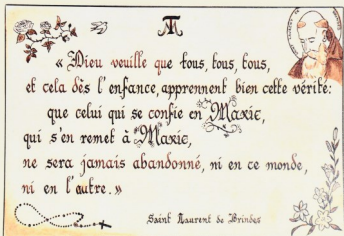 « Dieu veuille que tous, tous, tous,
et cela dès l'enfance, apprennent bien cette vérité:
que celui qui se confie en Marie,
qui s'en remet à Marie,
ne sera jamais abandonné, ni en ce monde,
ni en l'autre. »
Saint Laurent de Brindes